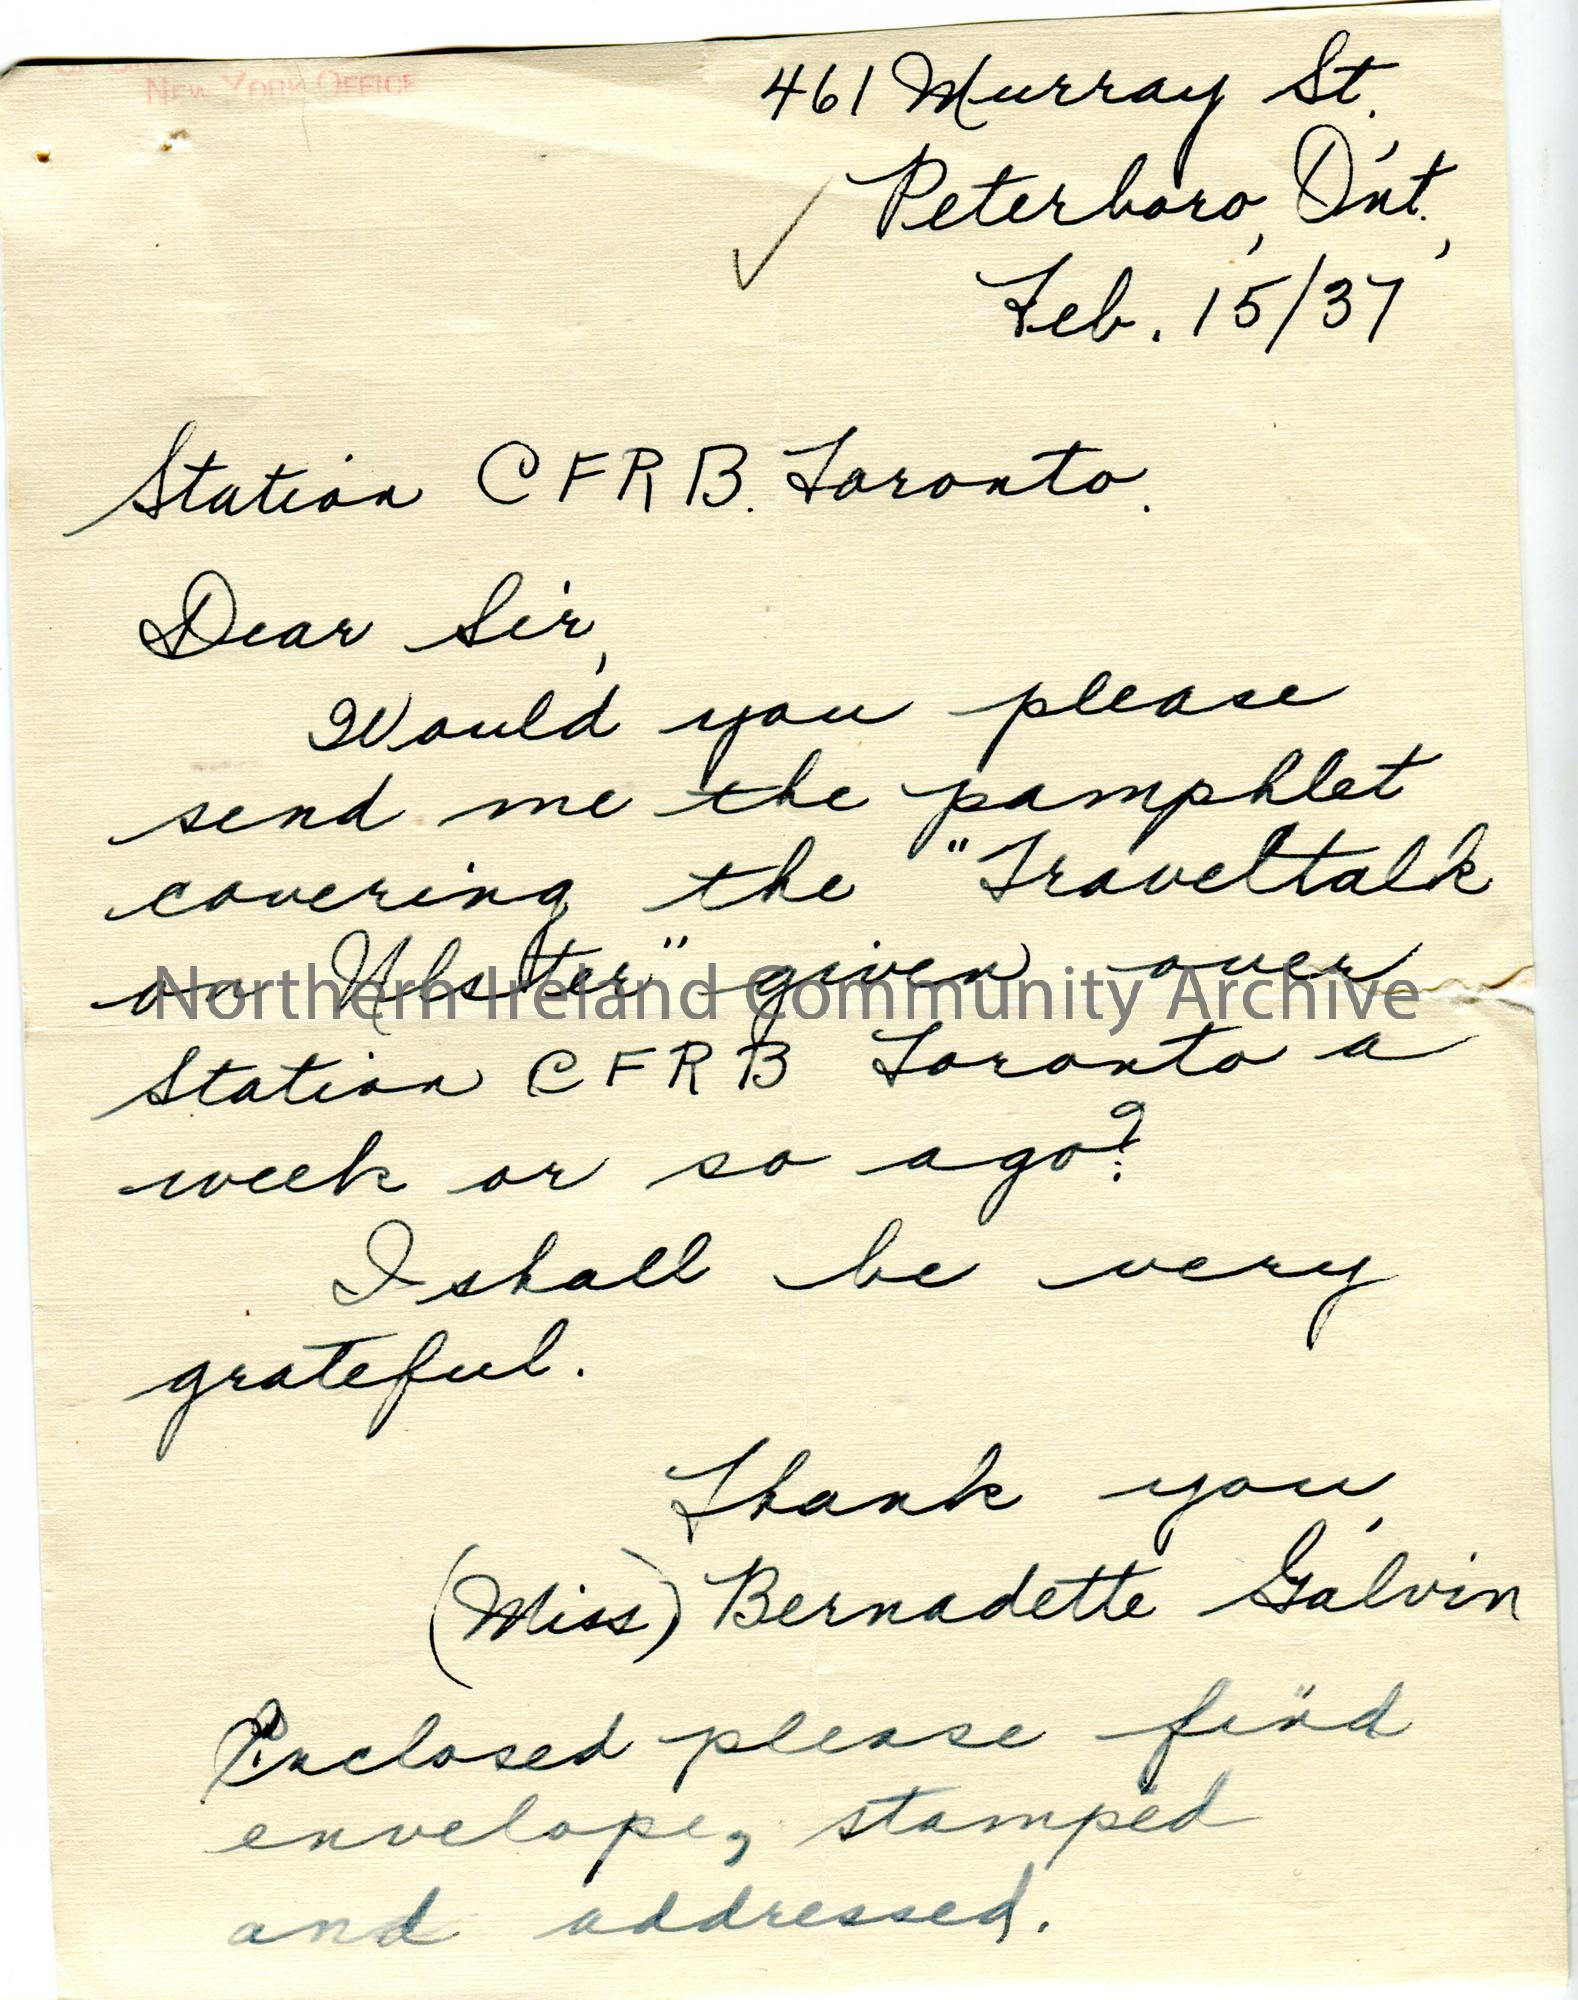 NEW YORK OFFICE
461 Murray St.,
Peterboro, Ont.,
Feb. 15/37
Station CFRB. Toronto.
Dear Sir,
Would you please
send me the pamphlet
covering the "Traveltalk
on Ulster" given over
Northern Ireland Community Archive
Station CFRB Toronto a
week or so ago?
I shall be very
grateful.
Thank you,
(Miss) Bernadette Galvin
Enclosed please find
envelope, stamped
and addressed.